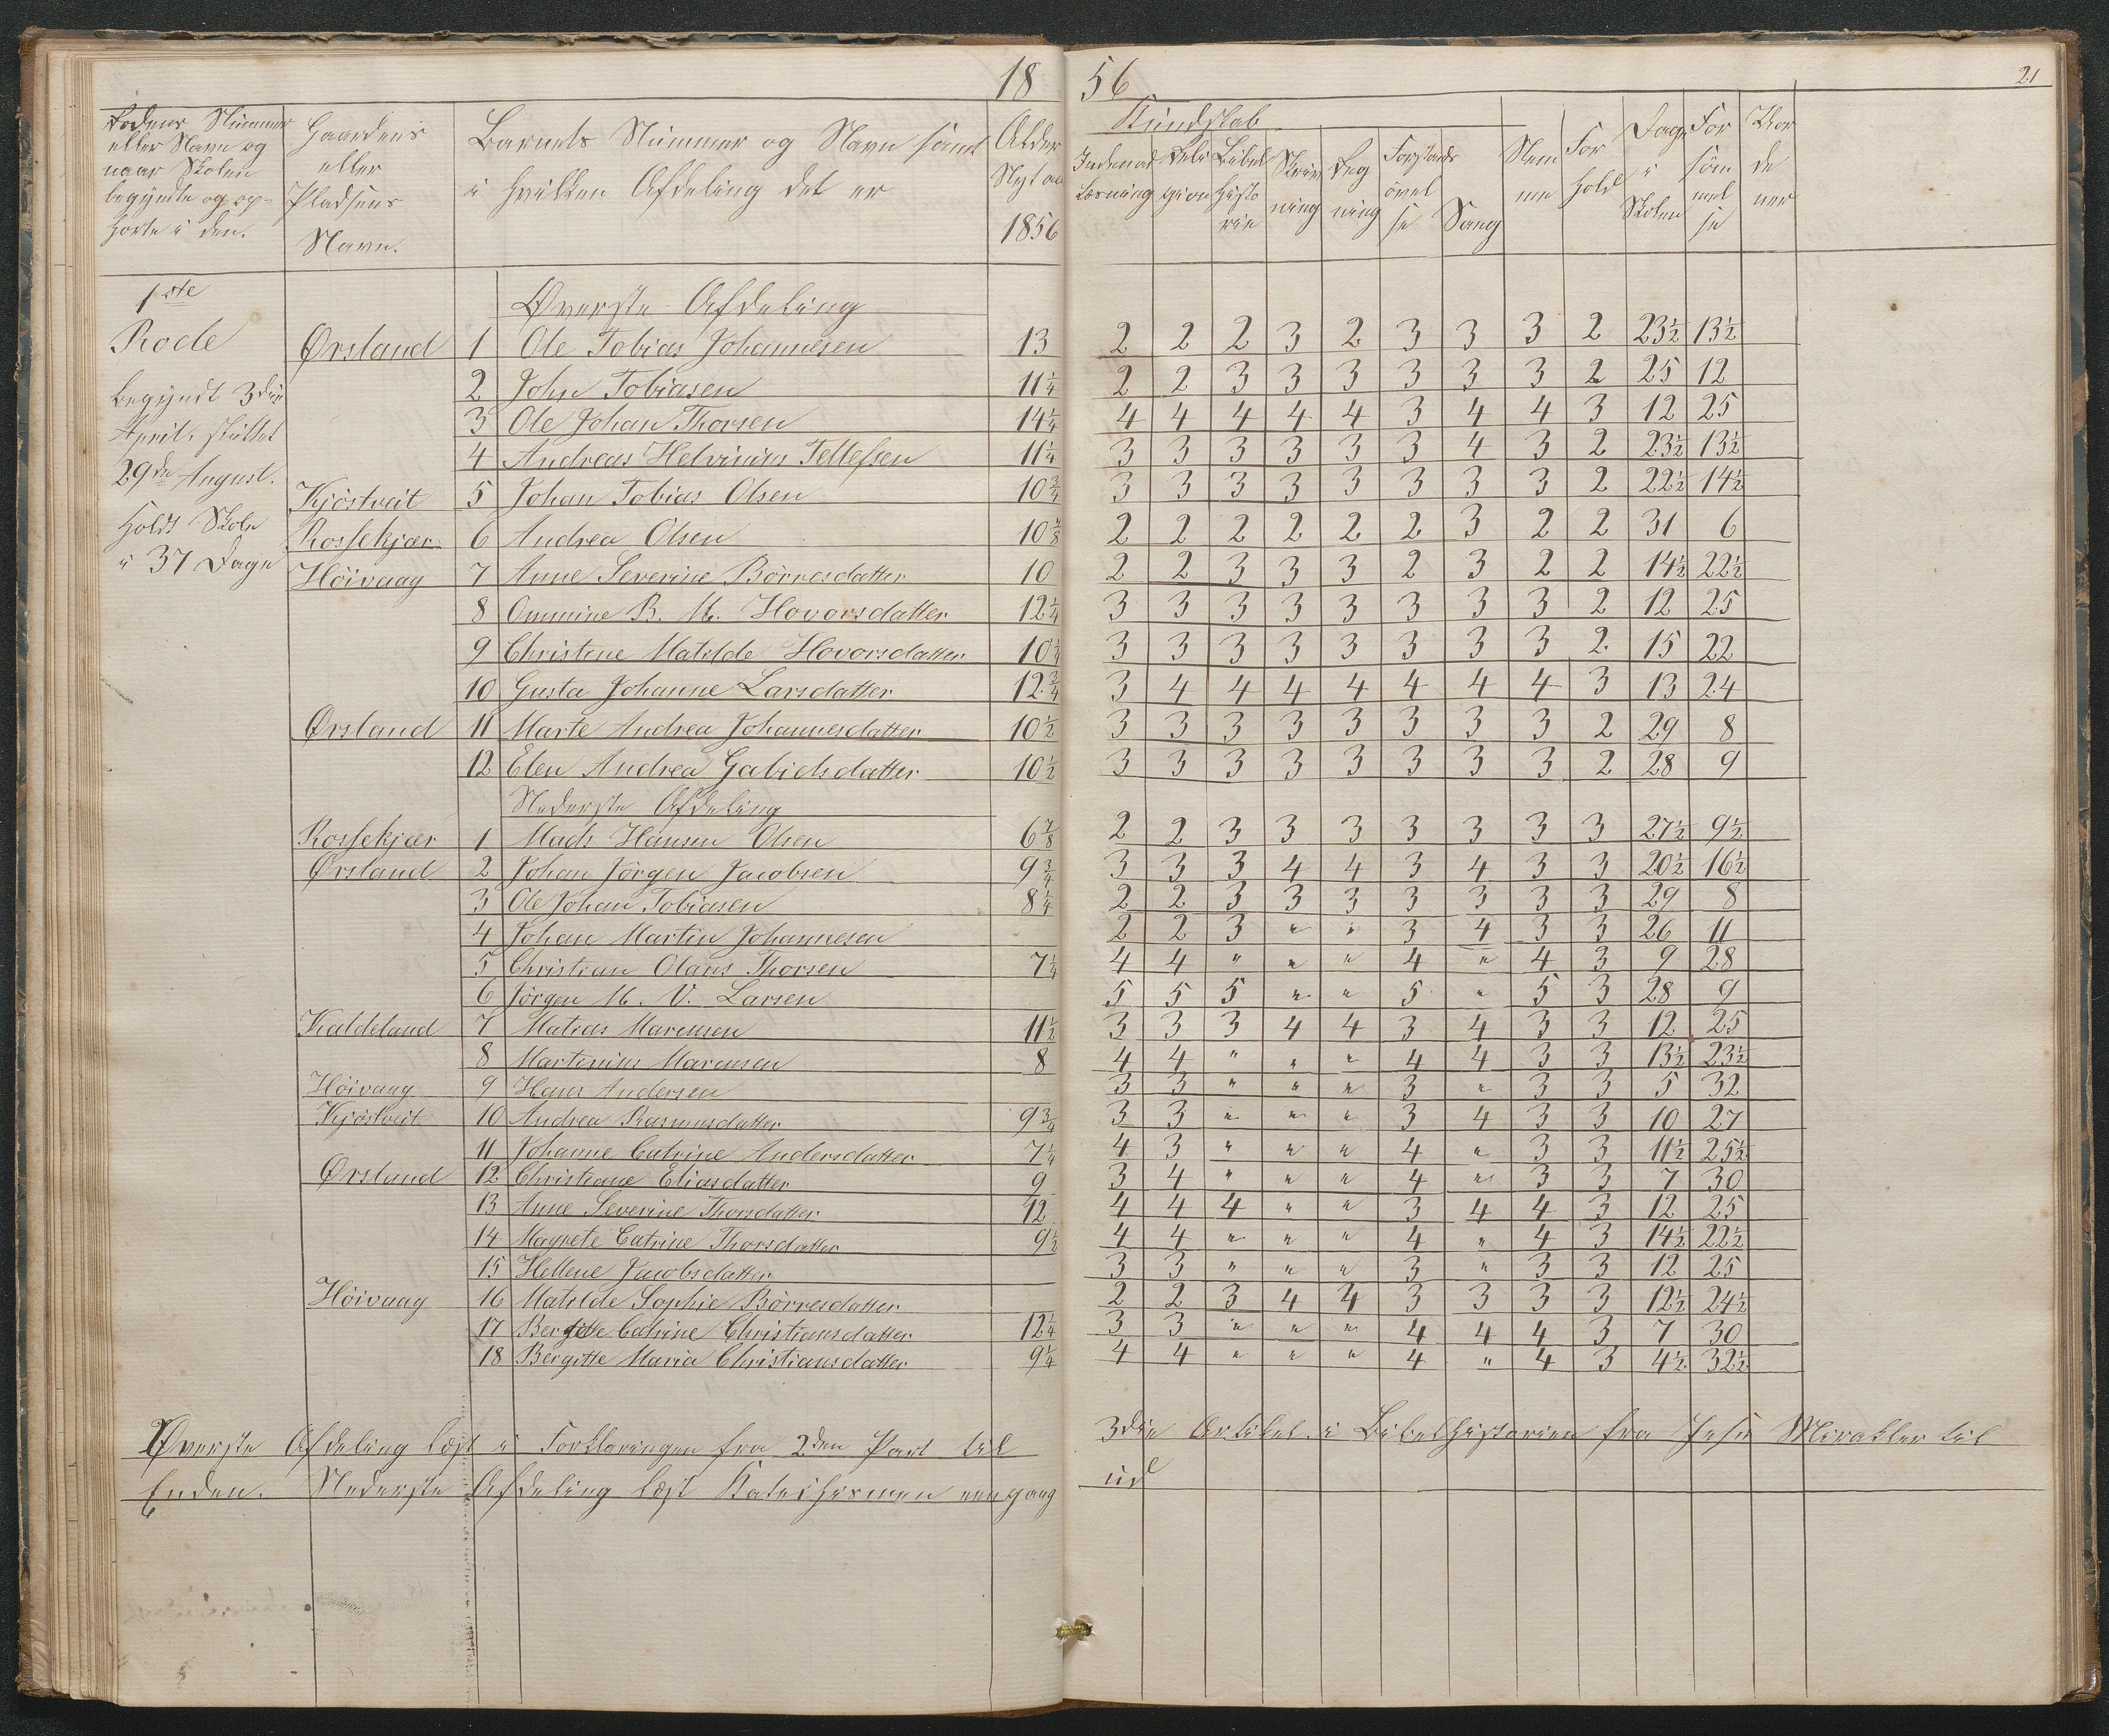 18 56
21
Rodens Nummer
eller Navn og
naar Skolen
begyndte og op-
hørte i den.
Gaardens
eller
Pladsens
Navn.
Barnets Nummer og Navn samt
i hvilken Afdeling det er
Alder
Nyt aar
1856
Kundskab
Indenad Læsning
Religion
Bibel Histo rie
Skriv ning
Reg ning
Forstands øvel se
Sang
Nem me
For hold
Dage i Skolen
For søm mel se
Vor de ner
1ste
Rode
Begyndt 3die
April, sluttet
29de August.
Holdt Skole
i 37 Dage
Øverste Afdeling
Ørsland 1 Ole Tobias Johannesen 13 2 2 2 3 2 3 3 3 2 23½ 13½
2 John Tobiasen 11¼ 2 2 3 3 3 3 3 3 2 25 12
3 Ole Johan Thorsen 14¼ 4 4 4 4 4 3 4 4 3 12 25
4 Andreas Helvinius Tellefsen 11¼ 3 3 3 3 3 3 4 3 2 23½ 13½
Kjöstveit 5 Johan Tobias Olsen 10¾ 3 3 3 3 3 3 3 3 2 22½ 14½
Rossekjær 6 Andrea Olsen 10⅞ 2 2 2 2 2 2 3 2 2 31 6
Höivaag 7 Anne Severine Börresdatter 10 2 2 3 3 3 2 3 2 2 14½ 22½
8 Ommine B. M. Hovorsdatter 12¼ 3 3 3 3 3 3 3 3 2 12 25
9 Christine Matilde Hovorsdatter 10¼ 3 3 3 3 3 3 3 3 2 15 22
10 Gusta Johanne Larsdatter 12¾ 3 4 4 4 4 4 4 4 3 13 24
Ørsland 11 Marte Andrea Johannesdatter 10½ 3 3 3 3 3 3 3 3 2 29 8
12 Elen Andrea Gabielsdatter 10½ 3 3 3 3 3 3 3 3 2 28 9
Nederste Afdeling
Rossekjær 1 Mads Hansen Olsen 6⅞ 2 2 3 3 3 3 3 3 3 27½ 9½
Ørsland 2 Johan Jörgen Jacobsen 9¾ 3 3 3 4 4 3 4 3 3 20½ 16½
3 Ole Johan Tobiasen 8¼ 2 2 3 3 3 3 3 3 3 29 8
4 Johan Martin Johannesen 2 2 3 " " 3 4 3 3 26 11
5 Christian Olaus Thorsen 7¼ 4 4 " " " 4 " 4 3 9 28
6 Jörgen M. V. Larsen 5 5 5 " " 5 " 5 3 28 9
Kaldeland 7 Matias Marcusen 11½ 3 3 3 4 4 3 4 3 3 12 25
8 Martinius Marcusen 8 4 4 " " " 4 4 3 3 13½ 23½
Höivaag 9 Hans Andersen 3 3 " " " 3 " 3 3 5 32
Kjöstveit 10 Andrea Rasmusdatter 9¾ 3 3 " " " 3 4 3 3 10 27
11 Johanne Catrine Andersdatter 7¼ 4 3 " " " 4 " 3 3 11½ 25½
Ørsland 12 Christiane Eliasdatter 9 3 4 " " " 4 " 3 3 7 30
13 Anne Severine Thorsdatter 12 4 4 4 " " 3 4 4 3 12 25
14 Magrete Catrine Thorsdatter 9½ 4 4 " " " 4 " 4 3 14½ 22½
15 Hellene Jacobsdatter 3 3 " " " 3 " 3 3 12 25
Höivaag 16 Matilde Sophie Börresdatter 2 2 3 4 4 3 3 3 3 12½ 24½
17 Bergitte Catrine Christiansdatter 12¼ 3 3 " " " 4 4 4 3 7 30
18 Bergitte Maria Christiansdatter 9¼ 4 4 " " " 4 " 4 3 4½ 32½
Øverste Afdeling læst i Forklaringen fra 2den Part til 3die Artikel. i Bibelhistorien fra Jesu Mirakler til
Enden. Nederste Afdeling læst Katechismen een gang ud